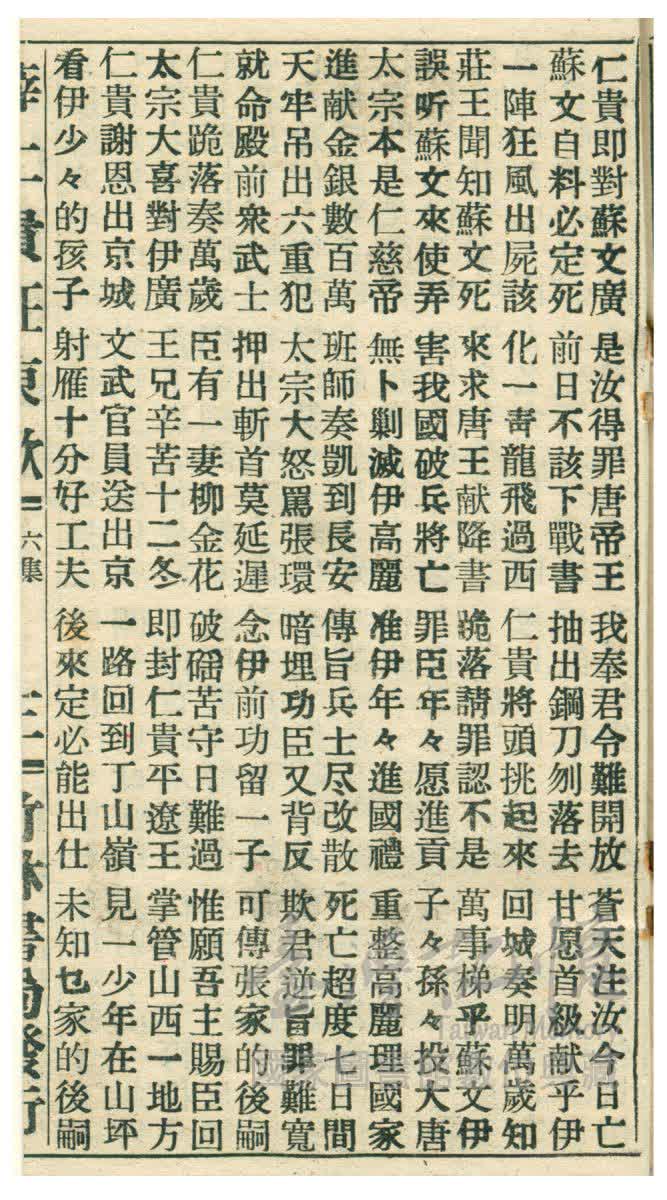 仁貴即對蘇文廣 是汝得罪唐帝王 我奉君令難開放 蒼天注汝今日亡
蘇文自料必定死 前日不該下戰書 抽出鋼刀刎落去 甘愿首級献乎伊
一陣狂風出屍該 化一靑龍飛過西 仁貴將頭挑起來 回城奏明萬歲知
莊王聞知蘇文死 來求唐王献降書 跪落請罪認不是 萬事梯乎蘇文伊
誤听蘇文來使弄 害我國破兵將亡 罪臣年々愿進貢 子々孫々投大唐
太宗本是仁慈帝 無卜剿滅伊高麗 准伊年々進國禮 重整高麗理國家
進献金銀數百萬 班師奏凱到長安 傳旨兵士尽改散 死亡超度七日間
天牢吊出六重犯 太宗大怒罵張環 暗埋功臣又背反 欺君逆旨罪難寬
就命殿前衆武士 押出斬首莫延遲 念伊前功留一子 可傳張家的後嗣
仁貴跪落奏萬歲 臣有一妻柳金花 破磘苦守日難過 惟願吾主賜臣回
太宗大喜對伊廣 王兄辛苦十二冬 即封仁貴平遼王 掌管山西一地方
仁貴謝恩出京城 文武官員送出京 一路回到丁山嶺 見一少年在山坪
看伊少々的孩子 射雁十分好工夫 後來定必能出仕 未知乜家的後嗣
薛仁貴征東歌 六集 三 竹林書局發行
Taiwan Memory
國家圖書館